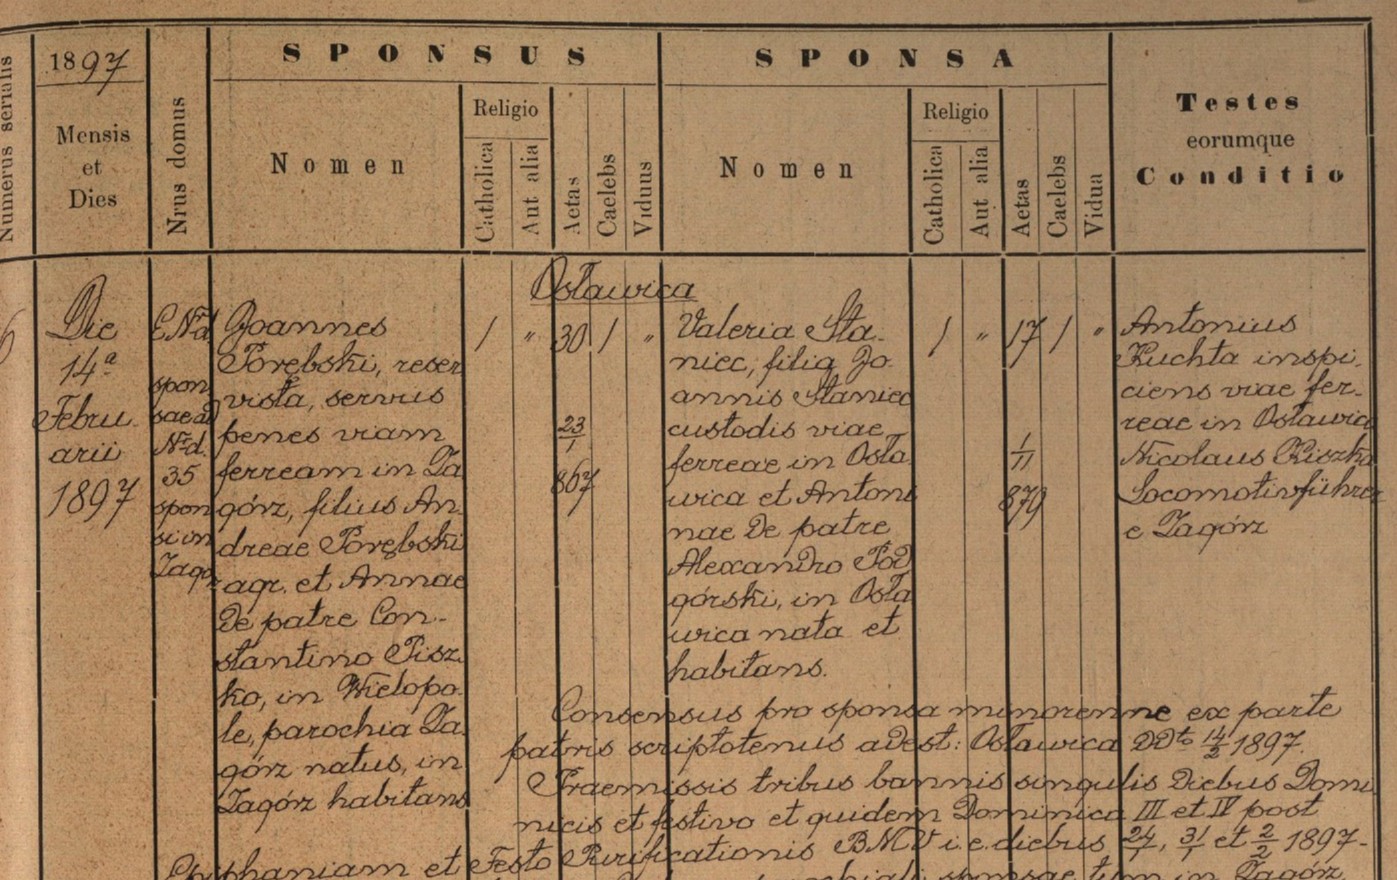 Numerus serialis
1897
Mensis
et
Dies
Nrus domus
SPONSUS
Nomen
Religio
Catholica
Aut alia
Aetas
Caelebs
Viduus
SPONSA
Nomen
Religio
Catholica
Aut alia
Aetas
Caelebs
Vidua
Testes
eorumque
Conditio
Osławica
6
Die
14ª
Febru
arii
1897
E Nd
spon
sae ad
Nd.
35
spon
si in
Zagó
Joannes
Porębski, reser
vista, servus
penes viam
ferream in Za
górz, filius An
dreae Porębski
agr. et Annae
de patre Con-
stantino Pisz
ko, in Wielopo
le, parochia Za
górz natus, in
Zagórz habitans
/ " 30 / "
23/1
867
Valeria Sta-
niec, filia Jo
annis Staniec
custodis viae
ferreae in Osła
wica et Antoni
nae de patre
Alexandro Pod
górski, in Osła
wica nata et
habitans.
/ " 17 / "
1/11
879
Antonius
Kuchta inspi-
ciens viae fer-
reae in Osławica
Nicolaus Kiszka
Locomotivführer
e Zagórz
Consensus pro sponsa minorenne ex parte
patris scriptotenus adest: Osławica ddto 14/2 1897.
Praemissis tribus bannis singulis diebus Domi
nicis et festivo et quidem Dominica III et IV post
Epiphaniam et Festo Purificationis BMV i.e. diebus 24/1, 31/1 et 2/2 1897-
sponsae tum in Zagórz